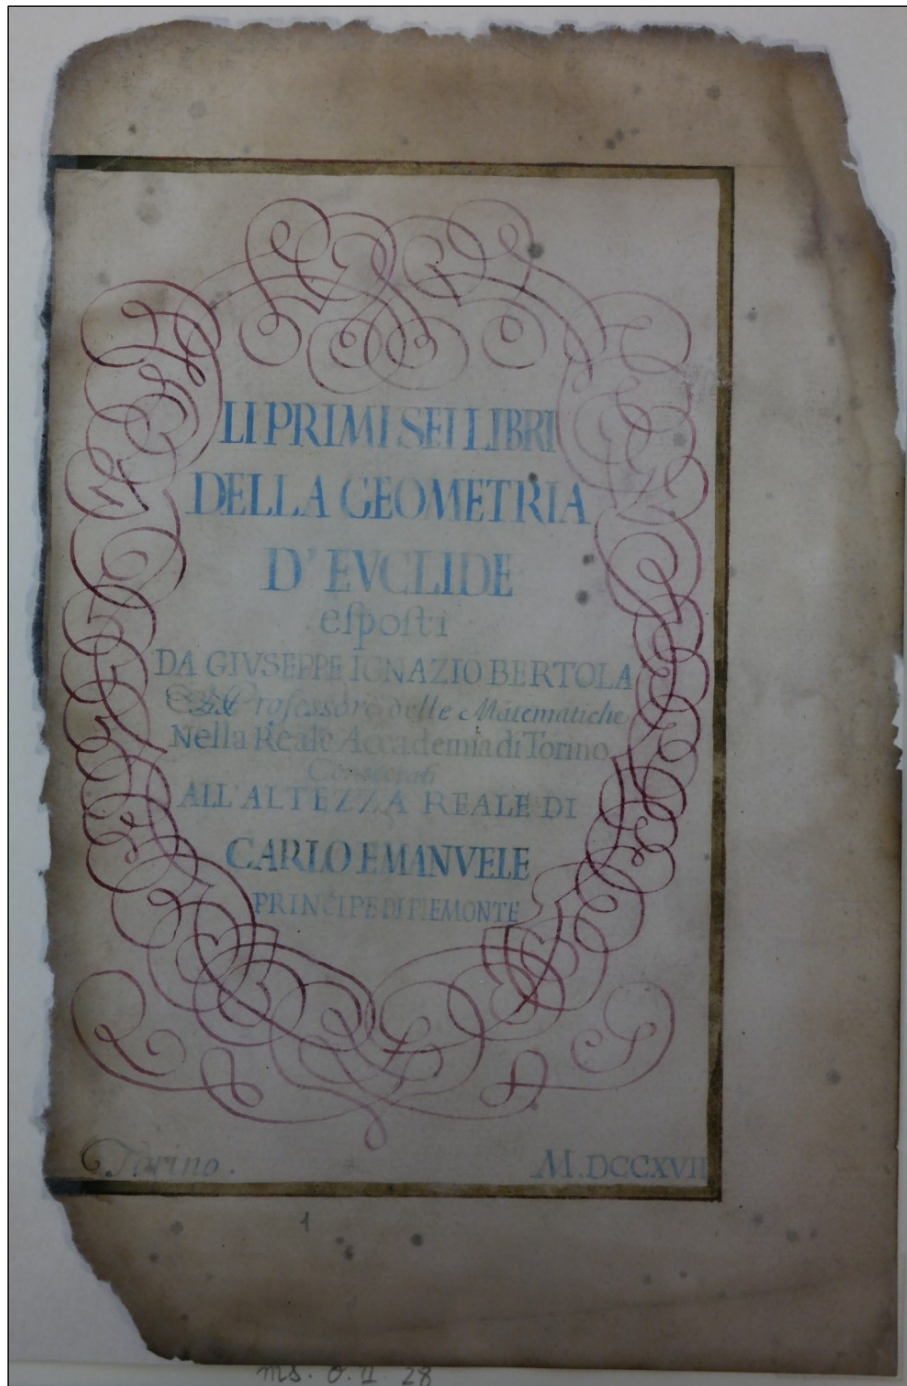 LI PRIMI SEI LIBRI
DELLA GEOMETRIA
D' EVCLIDE
eſpoſti
DA GIVSEPPE IGNAZIO BERTOLA
Professore delle Matematiche
Nella Reale Accademia di Torino
Consecrati
ALL' ALTEZZA REALE DI
CARLO EMANVELE
PRINCIPE DI PIEMONTE
Torino.
M.DCCXVII
1
ms. O. II 28